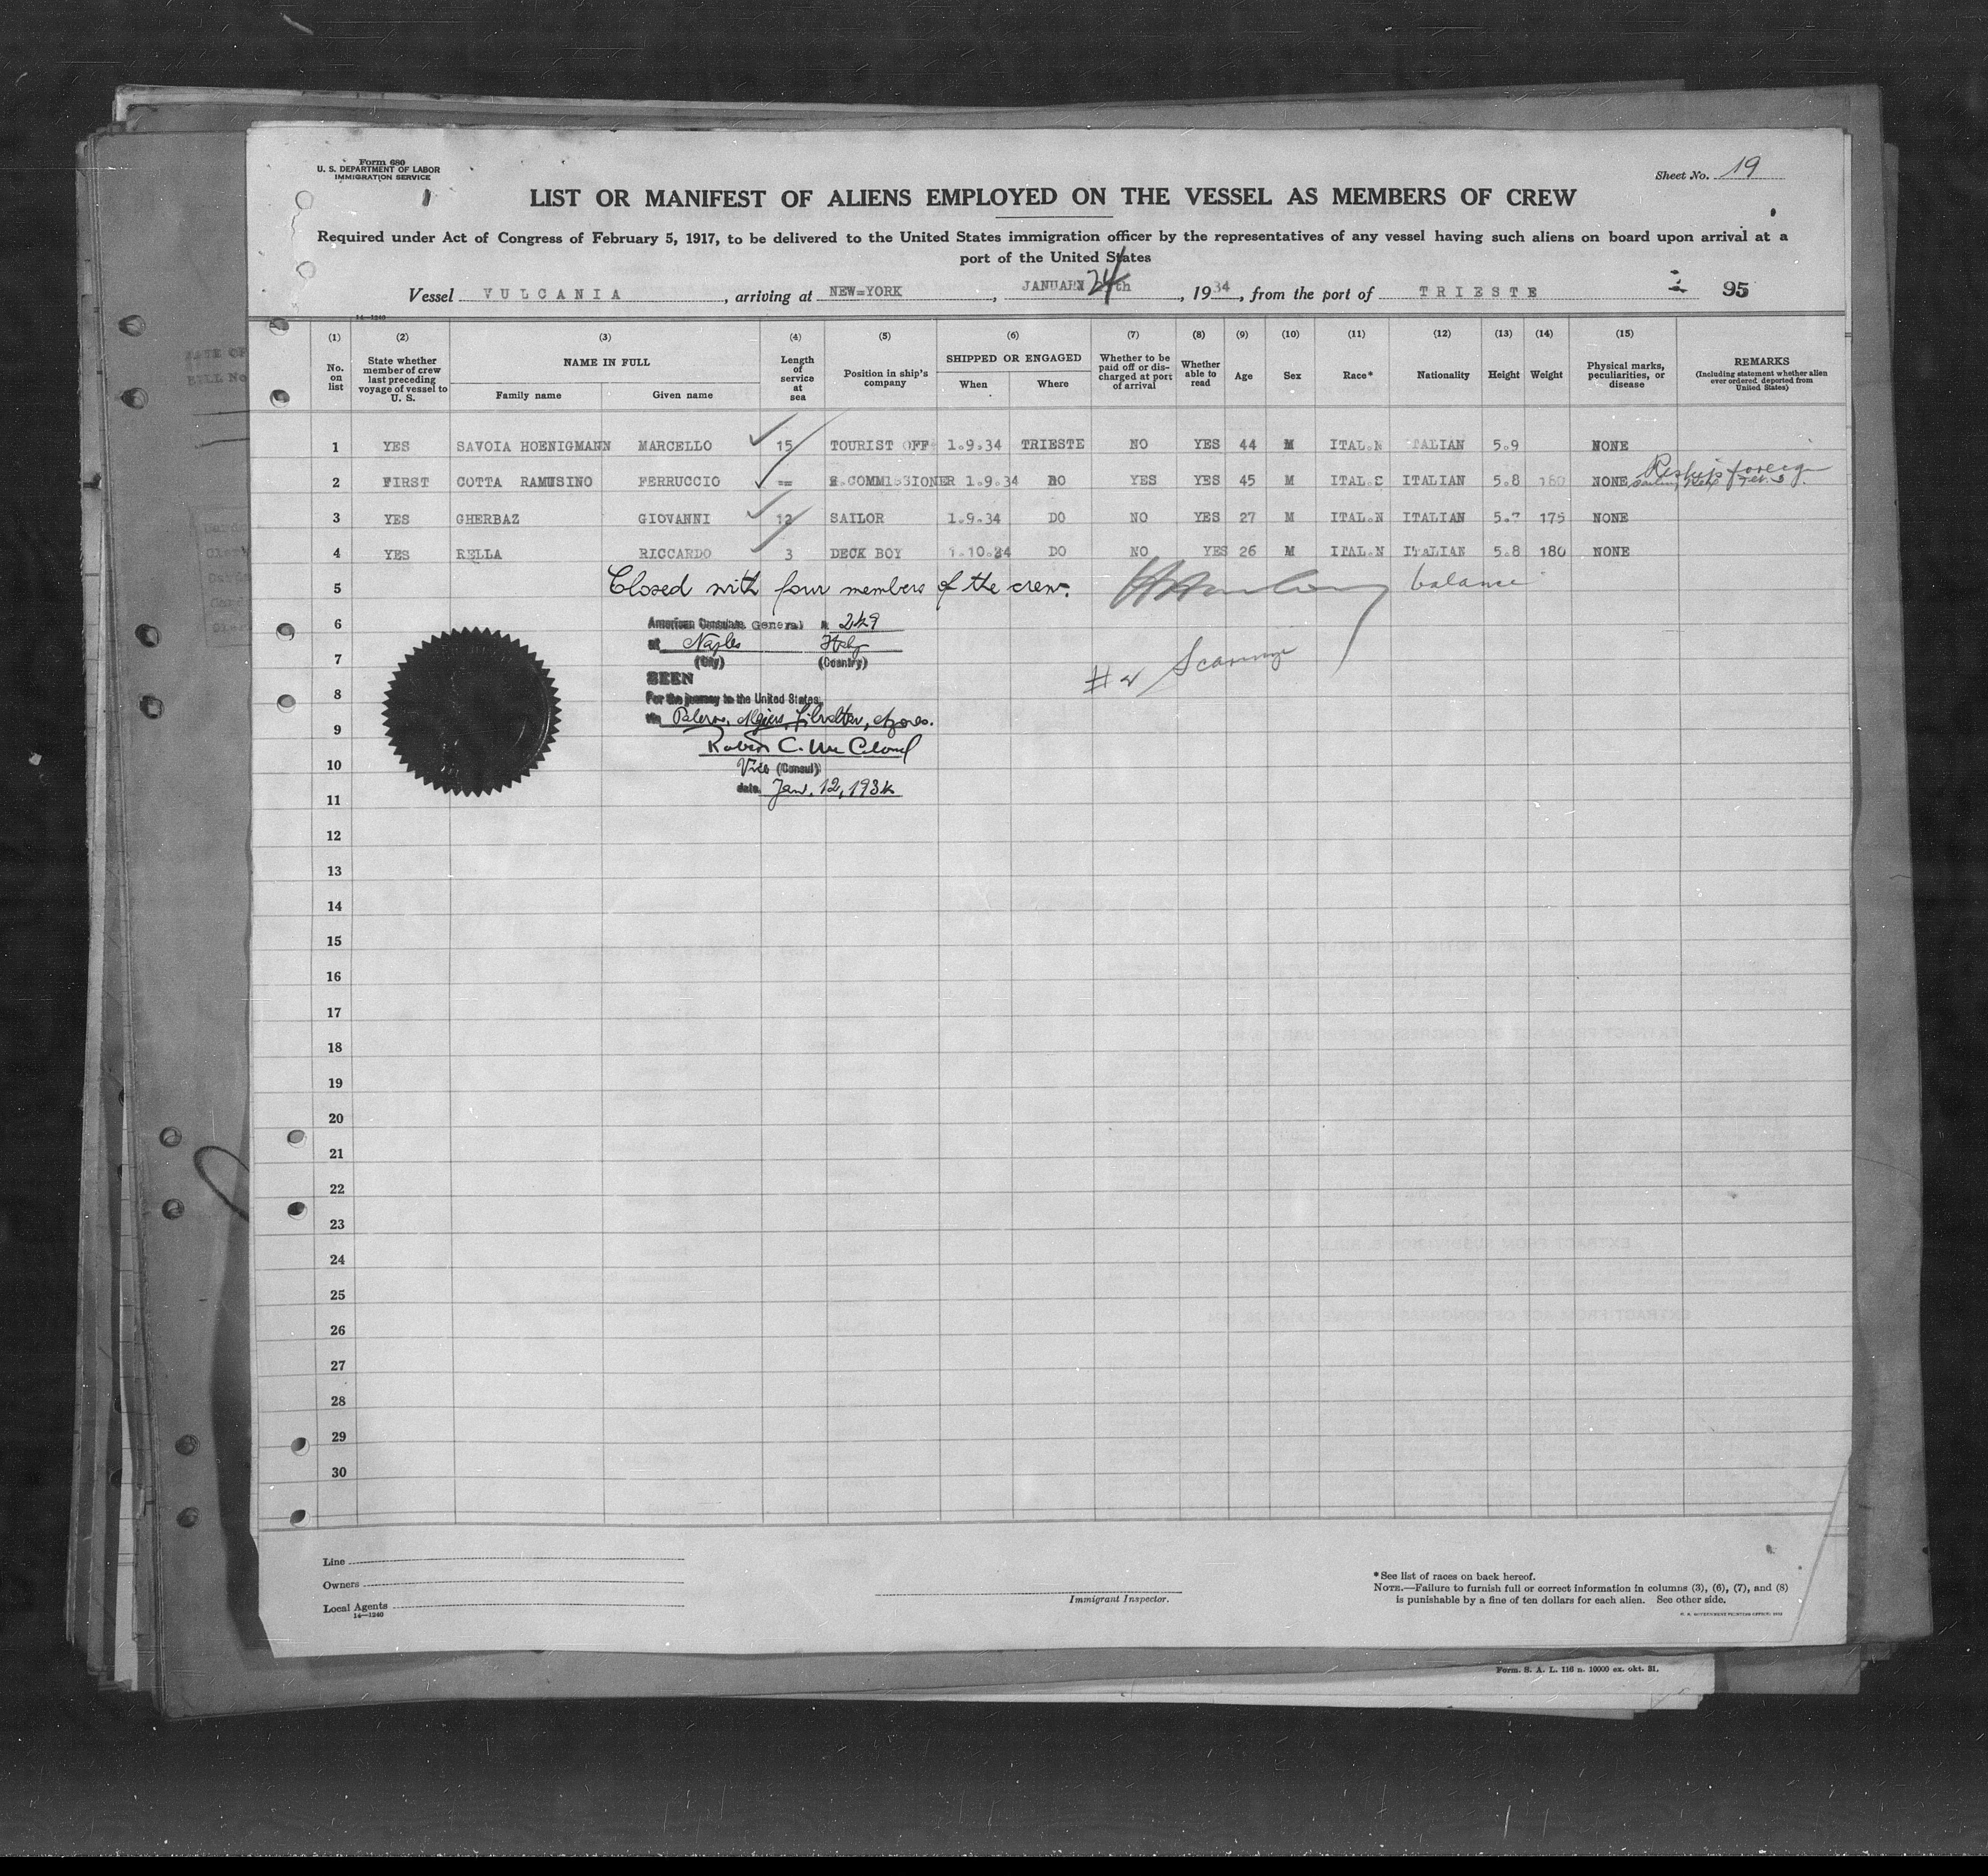 Form 680
U. S. DEPARTMENT OF LABOR
IMMIGRATION SERVICE
Sheet No. 19
LIST OR MANIFEST OF ALIENS EMPLOYED ON THE VESSEL AS MEMBERS OF CREW
Required under Act of Congress of February 5, 1917, to be delivered to the United States immigration officer by the representatives of any vessel having such aliens on board upon arrival at a
port of the United States
Vessel VULCANIA, arriving at NEW=YORK, JANUARY 24th, 1934, from the port of TRIESTE 95
14—1240
(1) (2) (3) (4) (5) (6) (7) (8) (9) (10) (11) (12) (13) (14) (15)
No. on list State whether member of crew last preceding voyage of vessel to U. S. NAME IN FULL Family name Given name Length of service at sea Position in ship's company SHIPPED OR ENGAGED When Where Whether to be paid off or discharged at port of arrival Whether able to read Age Sex Race* Nationality Height Weight Physical marks, peculiarities, or disease REMARKS (Including statement whether alien ever ordered deported from United States)
1 YES SAVOIA HOENIGMANN MARCELLO 15 TOURIST OFF 1.9.34 TRIESTE NO YES 44 M ITAL.N ITALIAN 5.9 NONE
2 FIRST COTTA RAMUSINO FERRUCCIO == COMMISSIONER 1.9.34 DO YES YES 45 M ITAL. ITALIAN 5.8 180 NONE Reship foreign
3 YES GHERBAZ GIOVANNI 12 SAILOR 1.9.34 DO NO YES 27 M ITAL.N ITALIAN 5.7 175 NONE
4 YES RELLA RICCARDO 3 DECK BOY 1.10.34 DO NO YES 26 M ITAL.N ITALIAN 5.8 180 NONE
5 Closed with four members of the crew. balance
6 American Consulate General 249
at Naples Italy
7 (City) (Country)
SEEN
8 For the journey to the United States,
via Palermo, Algiers, Gibraltar, Azores.
9
Robert C. McCloud
10 Vice (Consul)
date Jan. 12, 1934
11
12
13
14
15
16
17
18
19
20
21
22
23
24
25
26
27
28
29
30
Line
Owners
Local Agents
14—1240
Immigrant Inspector.
*See list of races on back hereof.
NOTE.—Failure to furnish full or correct information in columns (3), (6), (7), and (8)
is punishable by a fine of ten dollars for each alien. See other side.
Form. S. A. L. 116 n. 10000 ex. okt. 31.